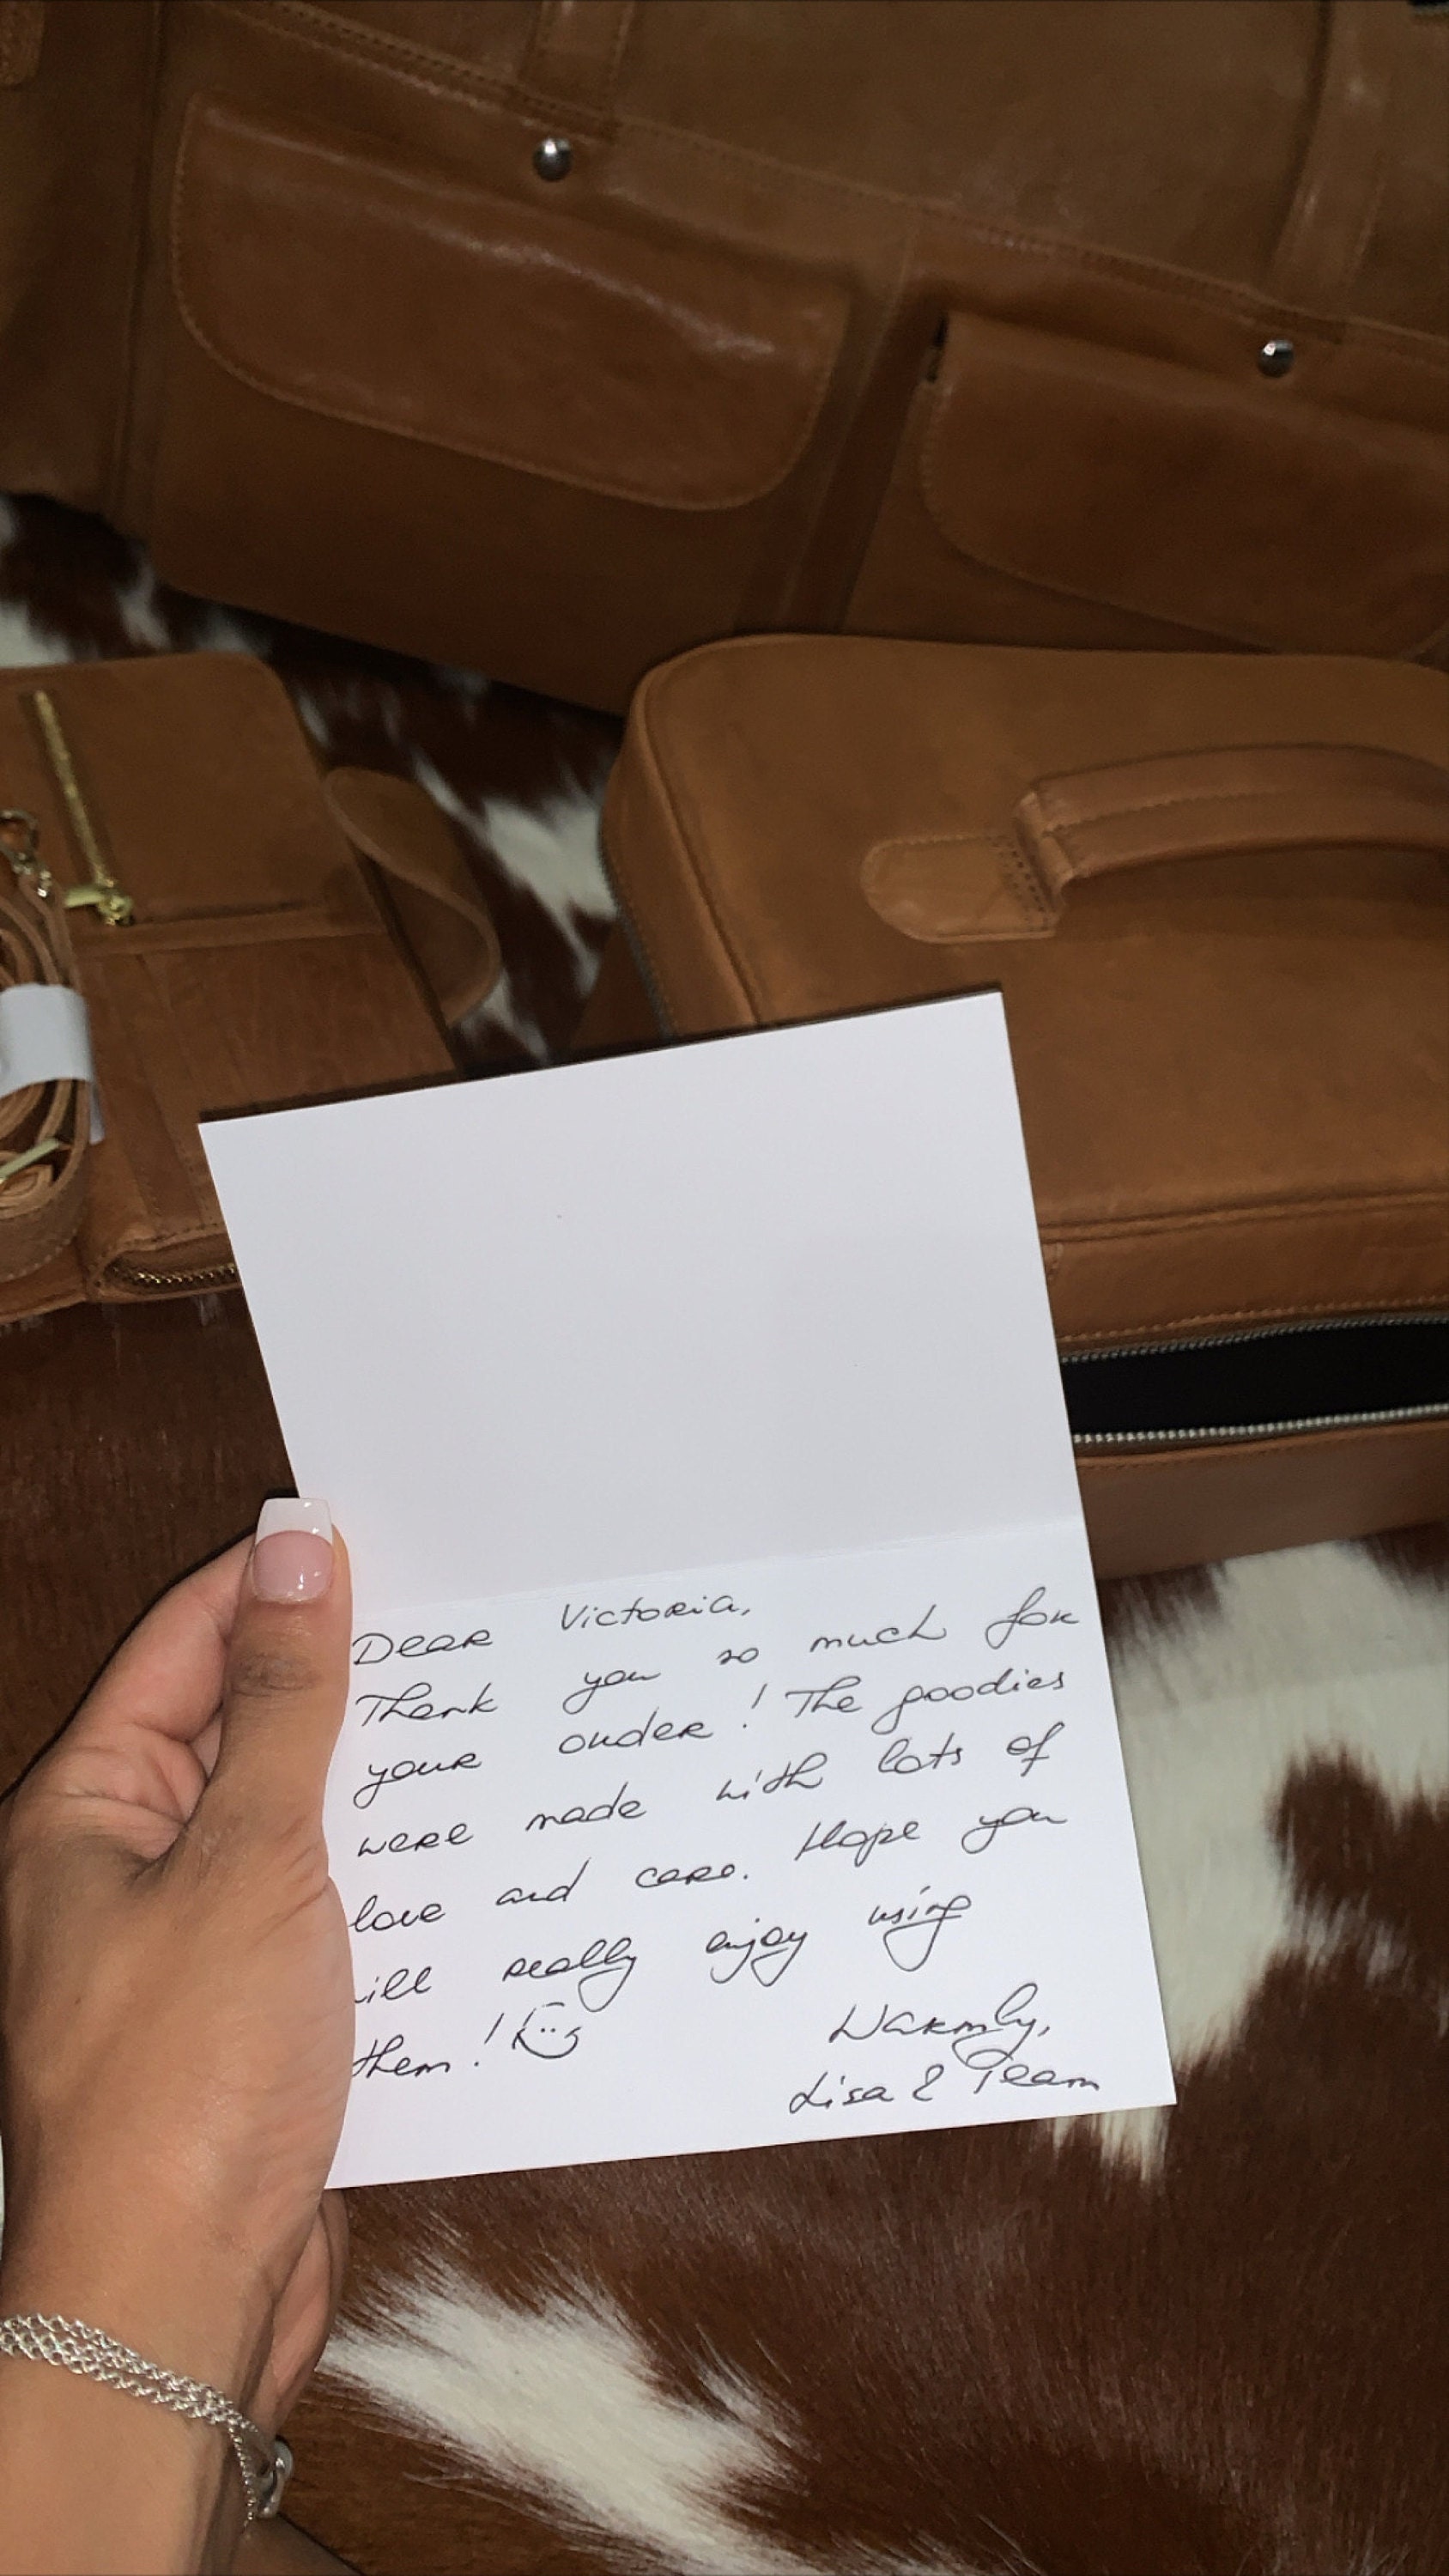 Dear Victoria,
Thank you so much for
your order! The goodies
were made with lots of
love and care. Hope you
will really enjoy using
them!
Warmly,
Lisa & Team